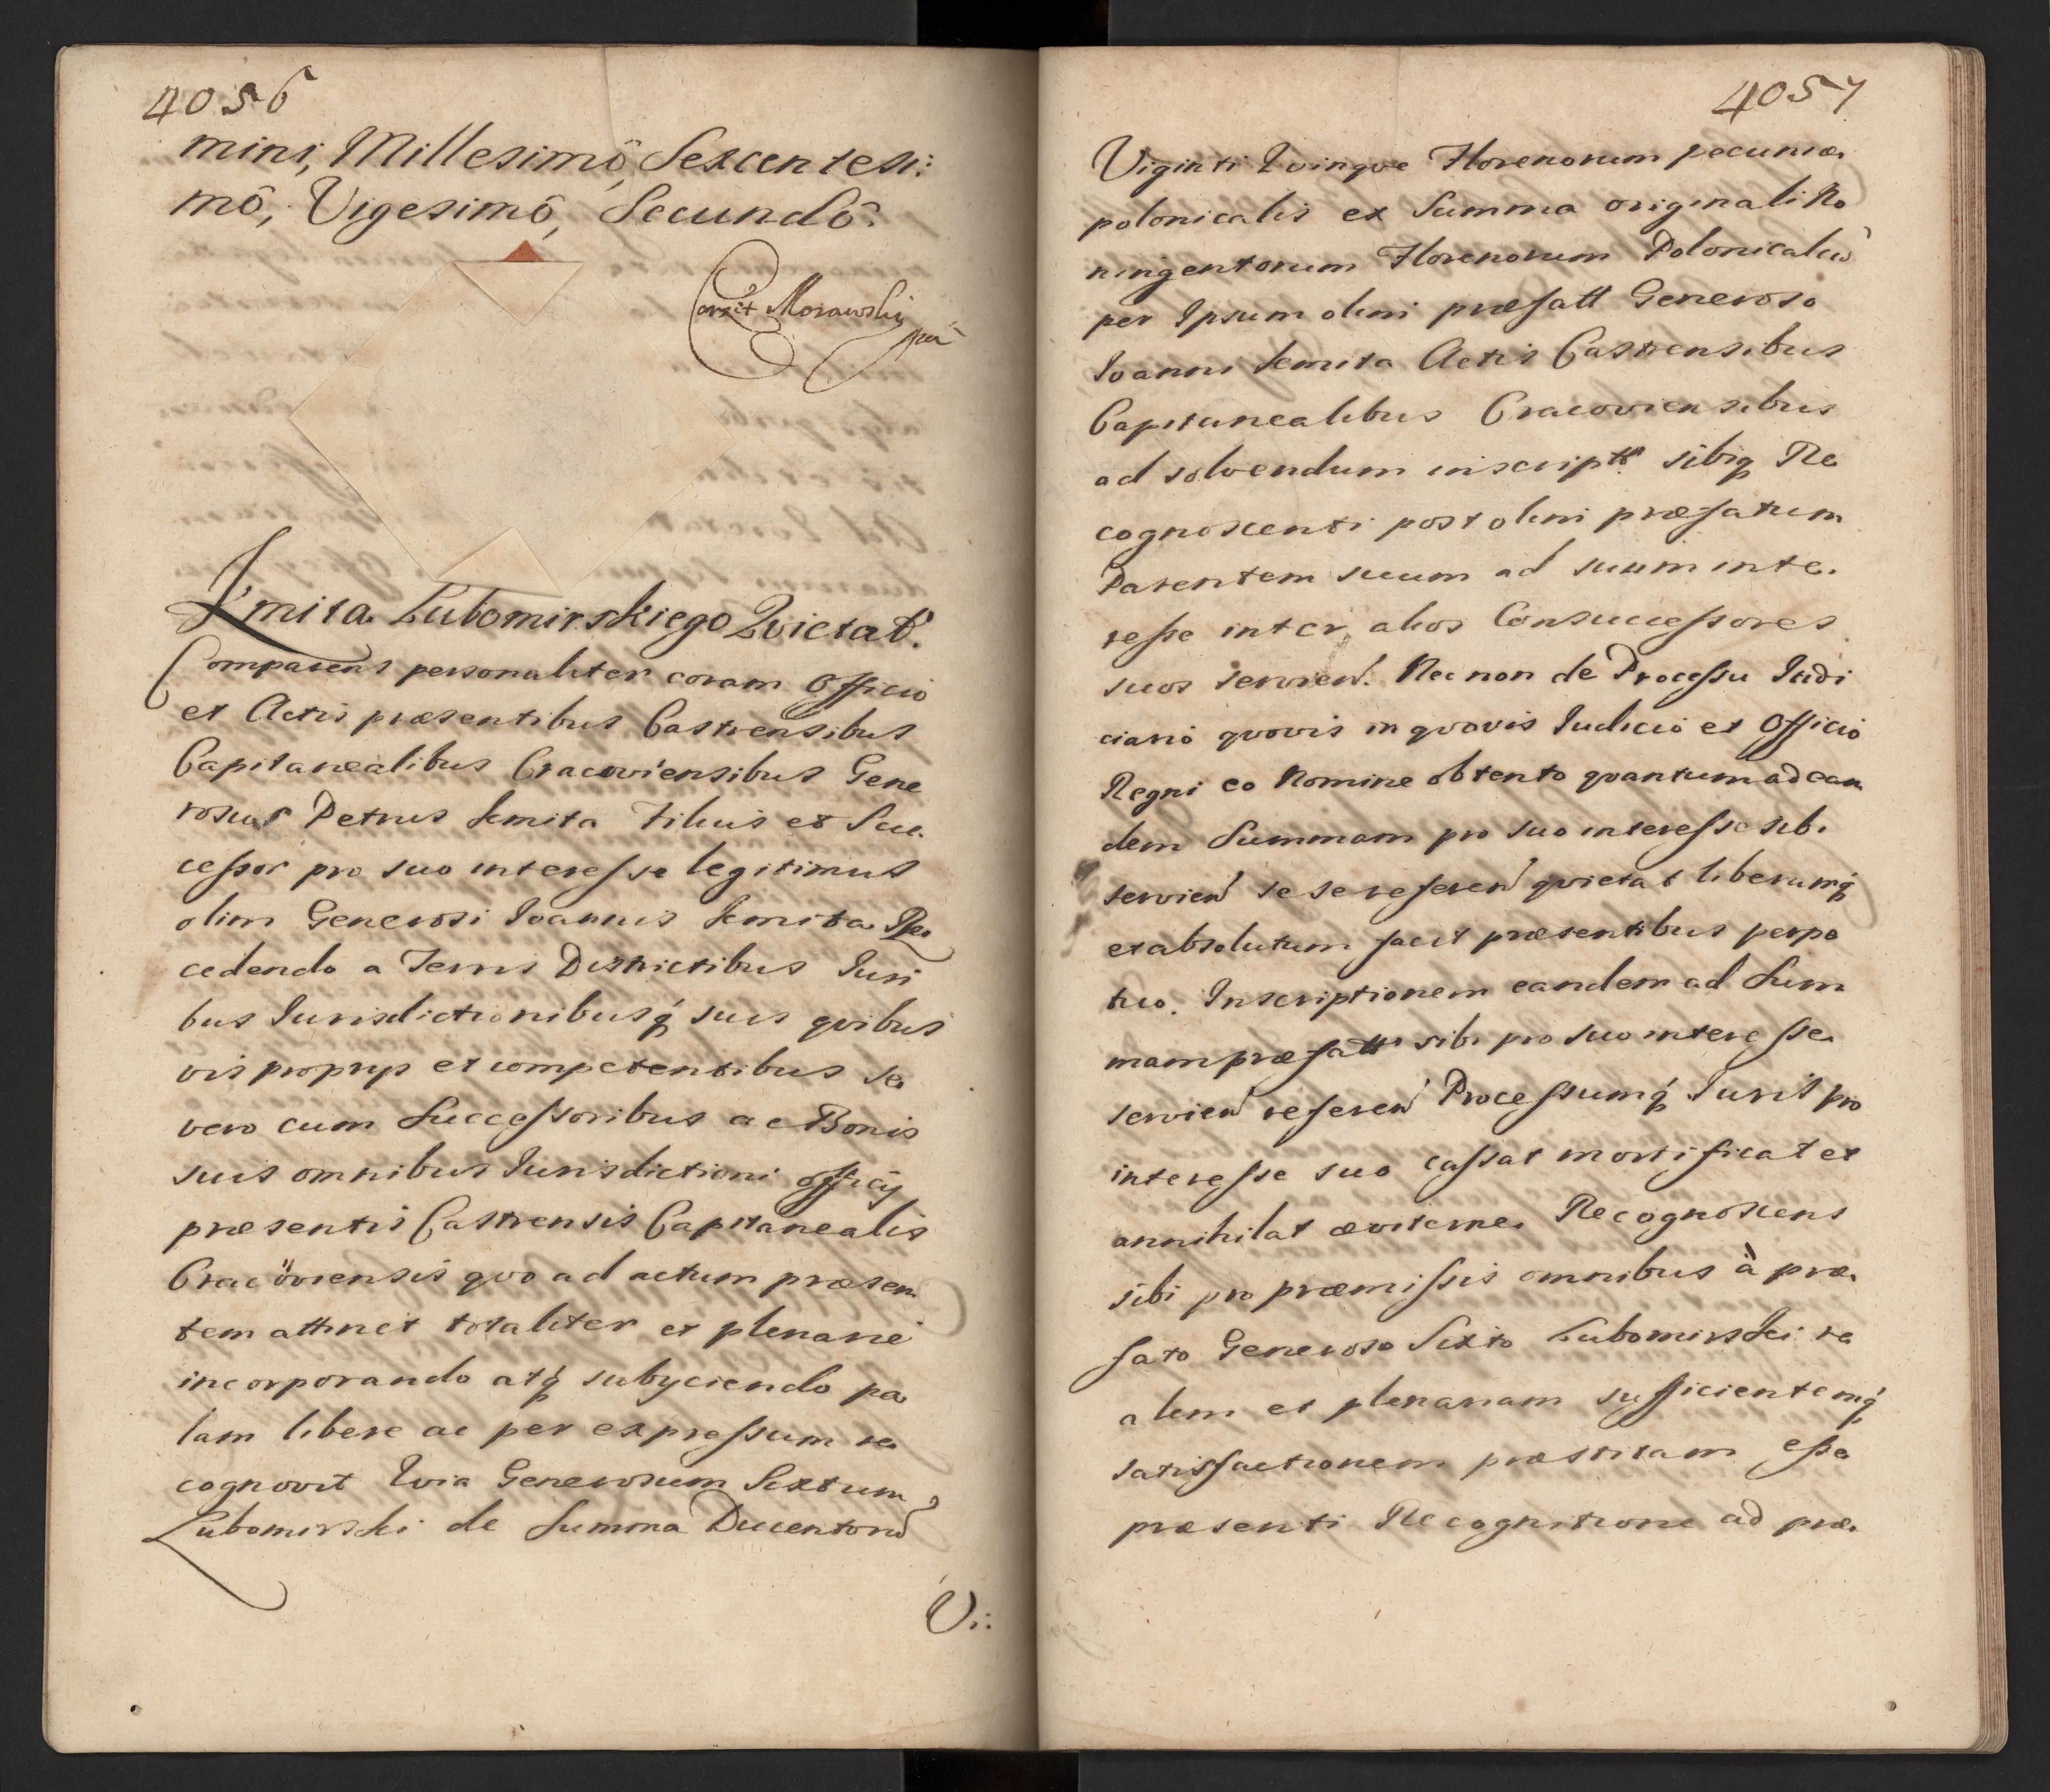 4056
mini, Millesimô, Sexcentesi:
mô, Vigesimô, Secundô.
Corexit Morawski
mpa
Kmita Lubomirskiego Qvietat.
Comparens personaliter coram Officio
et Actis præsentibus Castrensibus
Capitanealibus Cracoviensibus Gene
rosus Petrus Kmita Filius et Suc
cessor pro suo interesse legitimus
olim Generosi Ioannis Kmita Re
cedendo a Terris Districtibus Iuri
bus Iurisdictionibusq́ suis qvibus
vis proprys et competentibus se
vero cum Successoribus ac Bonis
suis omnibus Iurisdictioni officÿ
præsentis Castrensis Capitanealis
Cracöviensis qvo ad actum præsen
tem attinet totaliter et plenarie
incorporando atq́ subyciendo pa
lam libere ac per expressum re
cognovit Qvia Generosum Sixtum
Lubomirski de Summa Ducentorū
Vi:
4057
Viginti Qvinqve Florenorum pecuniæ
polonicalis ex Summa originali No
ningentorum Florenorum Polonicaliū
per Ipsum olim præfatt Generoso
Ioanni Kmita Actis Castrensibus
Capitanealibus Cracoviensibus
ad solvendum inscriptt sibiq Re
cognoscenti post olim præfatum
Parentem suum ad suum inte
resse inter alios Consuccessores
suos servien. Nec non de Processu Iudi
ciario qvovis in qvovis Iudicio et Officio
Regni eo Nomine obtento qvantum ad ean
dem Summam pro suo interesse sibi
servien se se referen qvietat liberumq́
et absolutum facit præsentibus perpe
tuo. Inscriptionem eandem ad Sum
mam præfatt sibi pro suo interesse
servien referen Processumq́ Iuris pro
interesse suo cassat mortificat et
annihilat æviterne. Recognoscens
sibi pro præmissis omnibus à præ
fato Generoso Sixto Lubomirski re
alem et plenariam sufficientemq́
satisfactionem præstitam esse
præsenti Recognitione ad præ